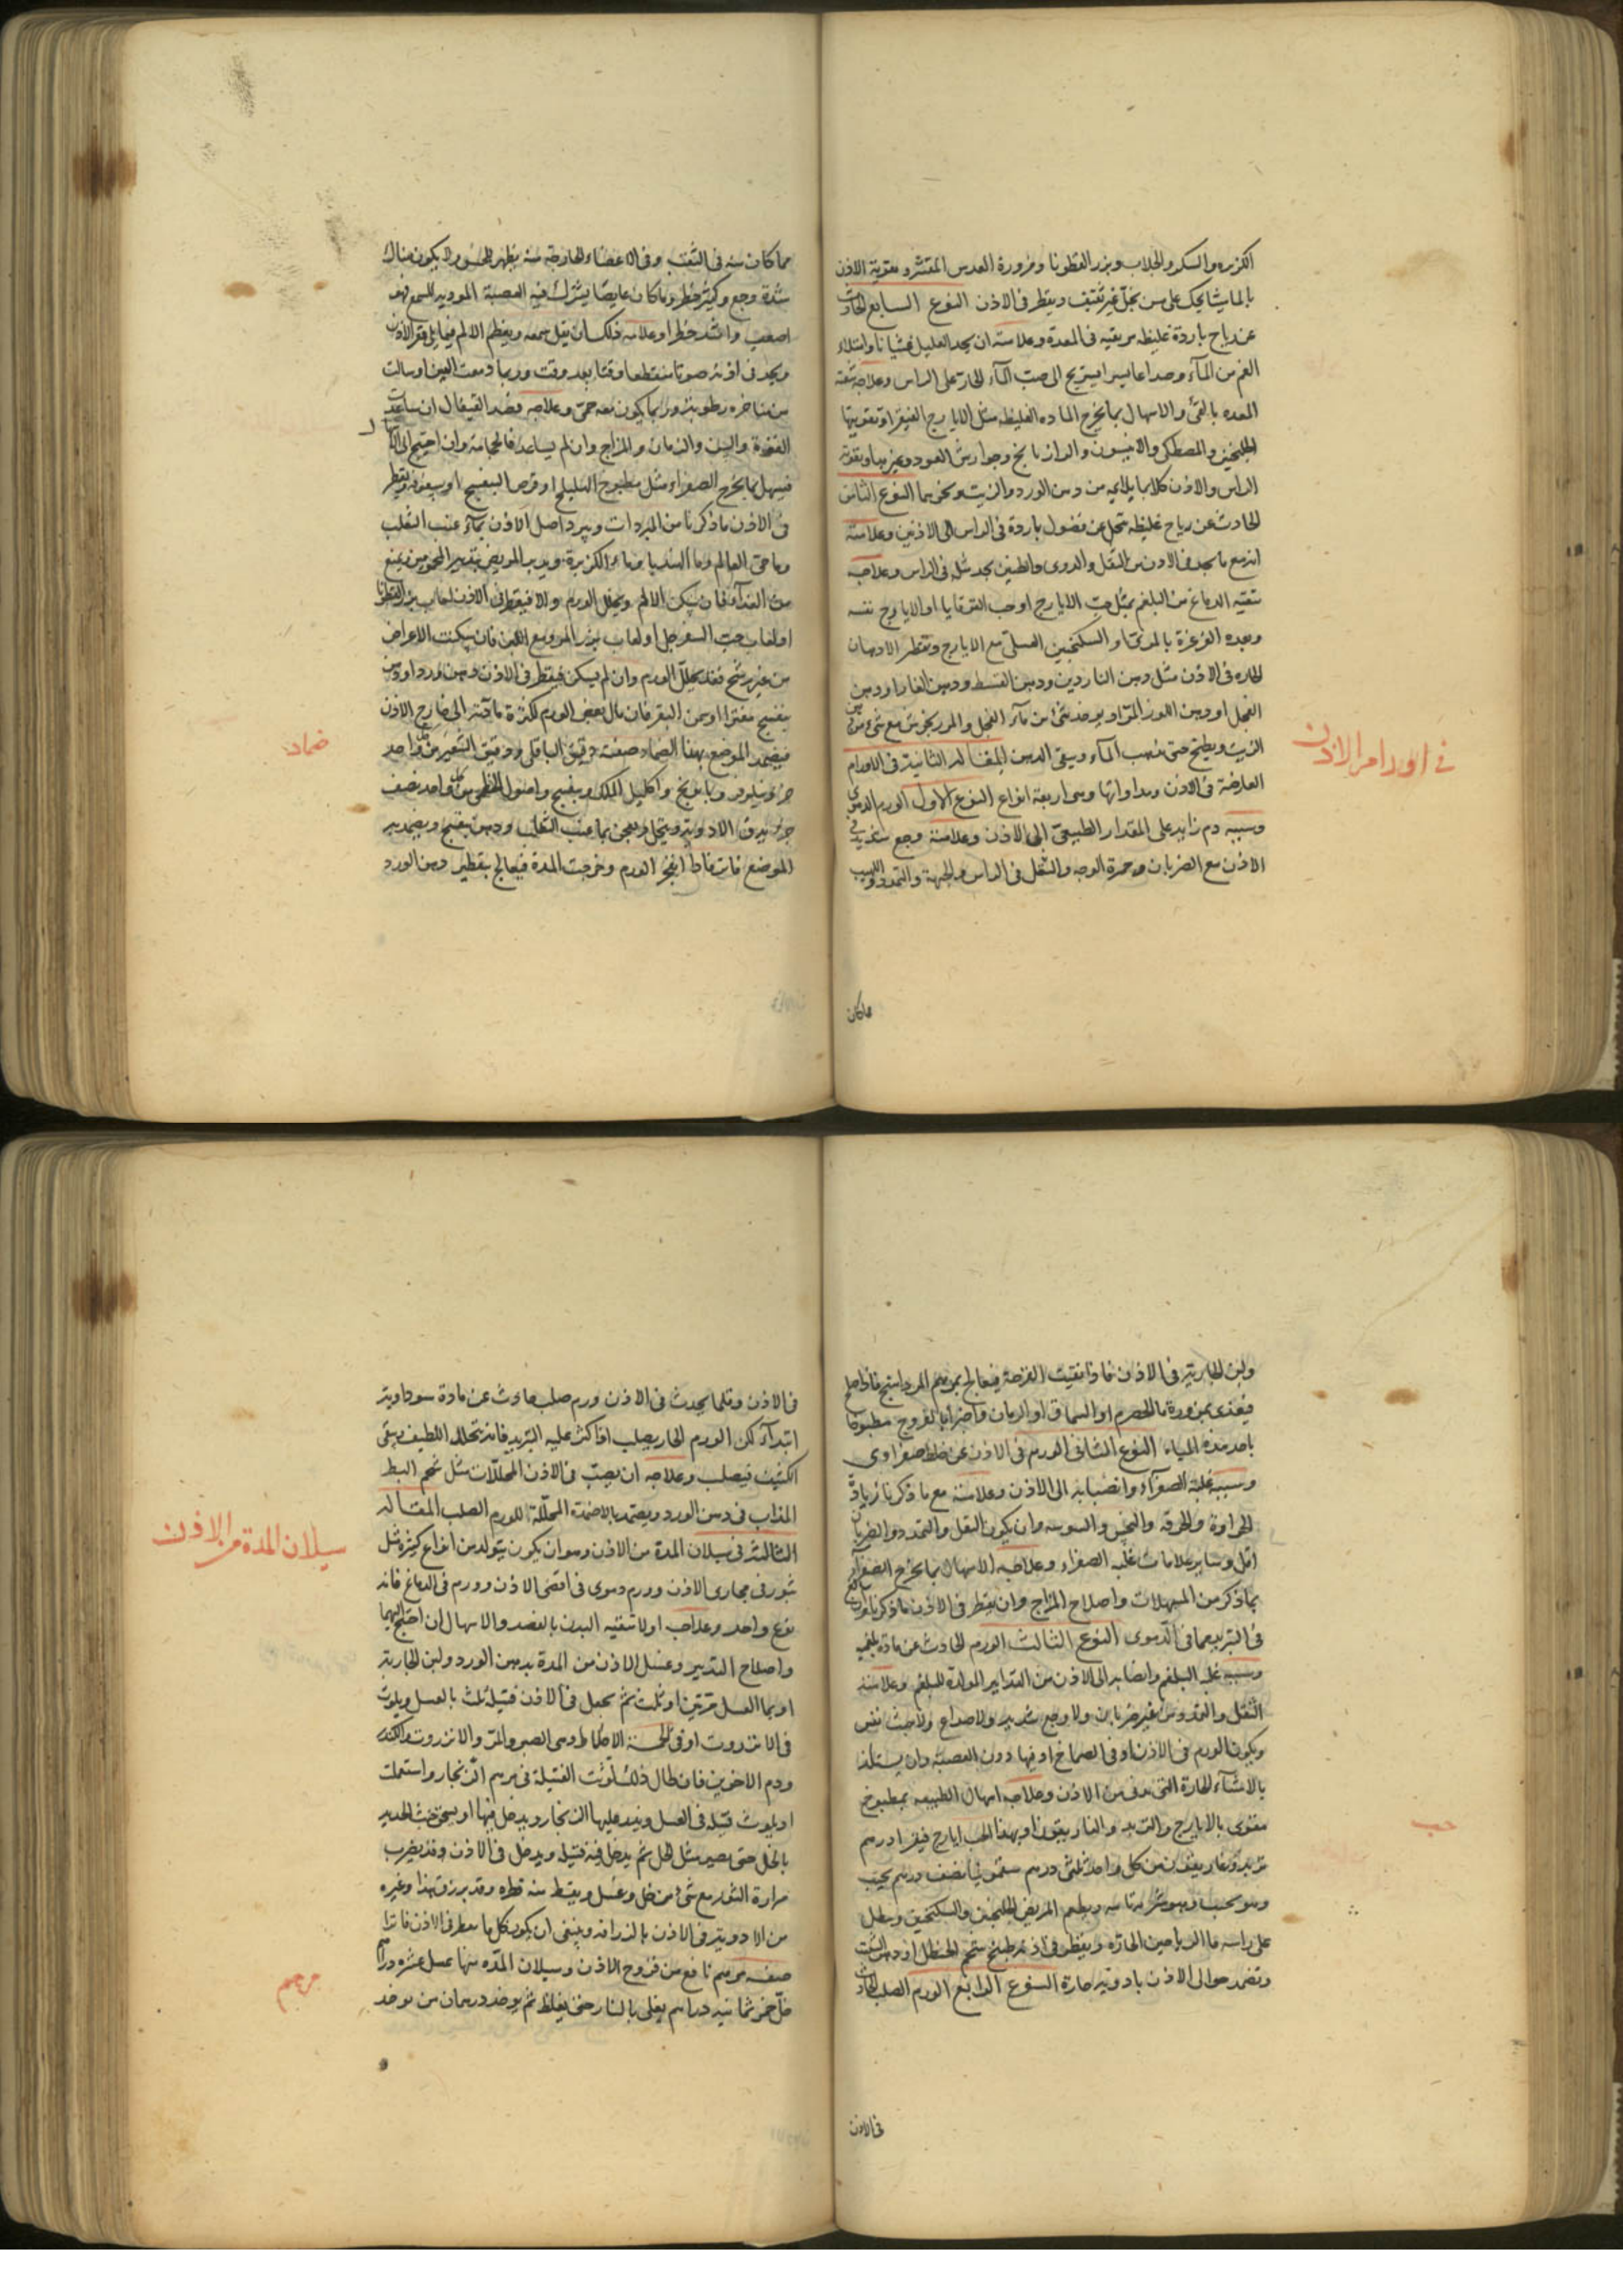 الكزبره والسكر والجلاب وبزر القطونا ومزورة العدس المقشر وتقوية الاذن
بالماميثا يحك على مسن بخل غير ثقيف ويقطر فى الاذن النوع السابع الحادث
عن رياح باردة غليظه مرتقيه فى المعدة وعلامته ان يجد العليل غشيانا وامتلاء
الفم من المآء وصداعا يسرا يستريح الى صب المآء الحار على الراس وعلاجه تنقية
المعده بالقئ والاسهال بما يخرج الماده الغليظه مثل الايارج الفيقرا وتقويتها
بالجلنجبين والمصطكى والانيسون والرازيانج وجوارش العود وغيرها وتقوية
الراس والاذن كلاهما بدهن الورد والزيت ونحوهما النوع الثامن
الحادث عن رياح غليظه تنحل عن فضول باردة فى الراس الى الاذنين وعلامته
انه مع ما يجد فى الاذن من الثقل والدوى والطنين يجد مثله فى الراس وعلاجه
تنقيه الدماغ من البلغم بمثل حب الايارج او حب القوقايا او الايارج نفسه
وبعده الغرغرة بالمرى او السكنجبين العسلى مع الايارج وتقطر الادهان
الحاره فى الاذن مثل دهن الناردين ودهن القسط ودهن الغار او دهن
الفجل او دهن اللوز المر او يوخذ شئ من مآء الفجل والمرزنجوش مع شئ من دهن
الزيت ويطبخ حتى يذهب المآء ويبقى الدهن المقاله الثانية فى الاورام
العارضة فى الاذن ومداواتها وهى اربعة انواع النوع الاول الورم الدموى
وسببه دم زايد على المقدار الطبيعى الى الاذن وعلامته وجع شديد فى
الاذن مع الضربان وحمرة الوجه والثقل فى الراس والجبهة والتمدد واللهيب
فى اورام الاذن
مما كان
مما كان منه فى الثقب وفى الاعضاء الخارجة منه يظهر للحس ولا يكون هناك
شدة وجع وكثير خطر وما كان غايصا يشترك فيه العصبة المودية للسمع فهو
اصعب واشد خطرا وعلامته ذلك ان يثقل سمعه ويعظم الالم فيما يلى قعر الاذن
ويجد فى اذنه صوتا منقطعا وقتا بعد وقت وربما دمعت العين او سالت
من مناخره رطوبة وربما يكون معه حمى وعلاجه فصد القيفال ان ساعدت
القوة والسن والزمان والمزاج وان لم يساعد فالحجامة وان احتيج الى
فيسهل بما يخرج الصفراء مثل مطبوخ الهليلج او قرص البنفسج او سفوفه ويقطر
فى الاذن ما ذكرنا من المبردات ويبرد اصل الاذن بمآء عنب الثعلب
وما حى العالم وما الهندبا وماء الكزبرة ويدبر المريض بتدبير المحمومين يمنع
من الغذآء فان سكن الالم وتحلل الورم والا فيقطر فى الاذن لعاب بزر القطونا
او لعاب حب السفرجل او لعاب بزر المرو مع اللبن فان سكنت الاعراض
من غير رشح فقد تحلل الورم وان لم يسكن فيقطر فى الاذن دهن ورد او دهن
بنفسج مفترا او سمن البقر فان مال بعض الورم لكثرة مادته الى خارج الاذن
فيضمد الموضع بهذا الضماد صفته دقيق الباقلى ودقيق الشعير من كل واحد
جزء نيلوفر وبابونج واكليل الملك وبنفسج واصول الخطمى من كل واحد نصف
جزء يدق الادوية وينخل ويعجن بما عنب الثعلب ودهن بنفسج ويضمد به
الموضع فاترا فاذا انفجر الورم وخرجت المدة فيعالج بتقطير دهن الورد
ضماد
ولبن الجارية فى الاذن فاذا نقيت القرحة فيعالج بمرهم المرداسنج فاذا صلح
فيغذى بمزورة ما الحصرم او السماق او الرمان واخرا بالفروج مطبوخا
باحد هذه المياه النوع الثانى الورم فى الاذن عن خلط صفراوى
وسببه غلبة الصفرآء وانصبابه الى الاذن وعلامته مع ما ذكرنا زيادة
الحراره والحرقه والنخس واليبوسه وان يكون الثقل والتمدد والضربان
اقل وساير علامات غلبه الصفراء وعلاجه الاسهال بما يخرج الصفرآء
بما ذكر من المسهلات واصلاح المزاج وان يقطر فى الاذن ما ذكرنا
فى التبريد مما فى الدموى النوع الثالث الورم الحادث عن مادة بلغميه
وسببه غلبه البلغم وانصبابه الى الاذن من التدابير المولدة للبلغم وعلامته
الثقل والتمدد من غير ضربان ولا وجع شديد ولا صداع ولا خبث نفس
ويكون الورم فى الاذن او فى الصماخ او فيها دون العصبة وان يستلذ
بالاشيآء الحارة التى من الاذن وعلاجه اسهال الطبيعه بمطبوخ
مقوى بالايارج والتربد والغاريقون او بهذا الحب ايارج فيقرا درهم
تربد وغاريقون من كل واحد ثلثى درهم سقمونيا نصف درهم يعجن
ويحبب وهو شربة تامه ويطعم المريض الجلنجبين والسكنجبين ويبطل
على راسه ما الرياحين الحاره ويقطر فى اذنه طبيخ شحم الحنظل او دهن الشبت
وتضمد حوالى الاذن بادويه حارة النوع الرابع الورم الصلب الحادث
حب
فى الاذن
فى الاذن وقلما يحدث فى الاذن ورم صلب حادث عن مادة سوداوية
ابتدآء لكن الورم الحار يصلب اذا كثر عليه التبريد فانه تحلل اللطيف ويبقى
الكثيف فيصلب وعلاجه ان يصب فى الاذن المحللات مثل شحم البط
المذاب فى دهن الورد ويضمد بالاضمدة المحللة للورم الصلب المقاله
الثالثة فى سيلان المدة من الاذن وهو ان يكون يتولد من انواع كثيرة مثل
بثور فى مجارى الاذن وورم دموى فى اقصى الاذن وورم فى الدماغ فانه
نوع واحد وعلاجه اولا تنقيه البدن بالفصد والاسهال ان احتيج اليهما
واصلاح التدبير وغسل الاذن من المدة بدهن الورد ولبن الجارية
او بما العسل مرتين او ثلث ثم يجعل فى الاذن فتيلة تلت بالعسل ويلوث
فى الانزروت او فى الاكحال وهى الصبر والمر والانزروت والكندر
ودم الاخوين فان طال ذلك لوثت الفتيلة فى مرهم الزنجار واستعملت
او يلوث فتيله فى العسل ويذر عليها الزنجار ويدخل فيها او يسحق خبث الحديد
بالخل حتى يصير مثل الخل ثم يدخل فيه فتيله ويدخل فى الاذن وقد يضرب
مرارة الثور مع شئ من خل وعسل ويقطر منه قطره وقد يزرق هذا وغيره
من الادوية فى الاذن بالزراقه وينبغى ان يكون كل ما يقطر فى الاذن فاترا
صفه مرهم نافع من قروح الاذن وسيلان المدّه منها عسل عشره دراهم
خلّ خمر ثمانيه دراهم يغلى بالنار حتى يغلظ ثم يوخذ درهمان من يوخذ
سيلان المدة من الاذن
مرهم